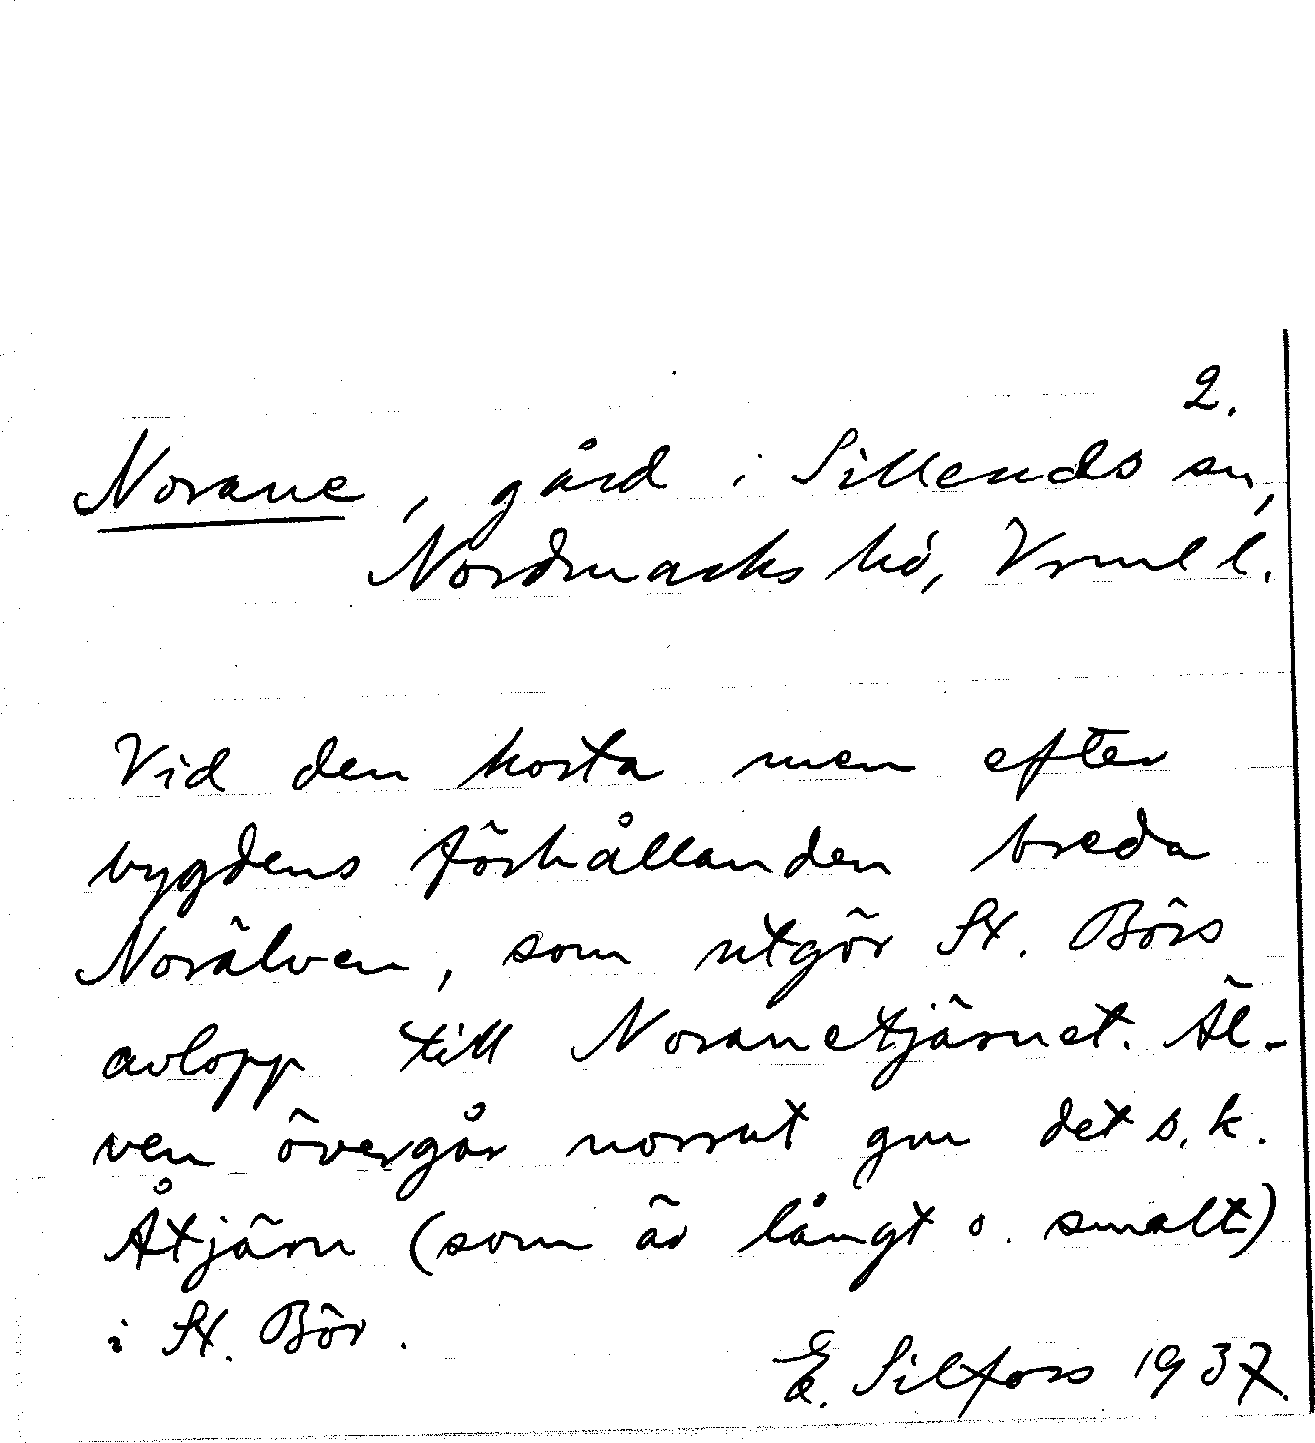 2.
Norane, gård i Silleruds sn,
Nordmarks hd, Vrml l.
Vid den korta men efter
bygdens förhållanden breda
Norälven, som utgör St. Börs
avlopp till Noranetjärnet. Äl-
ven övergår norrut gnm det s.k.
Åtjärn (som är långt o. smalt)
i St. Bör.
E. Silfors 1937.